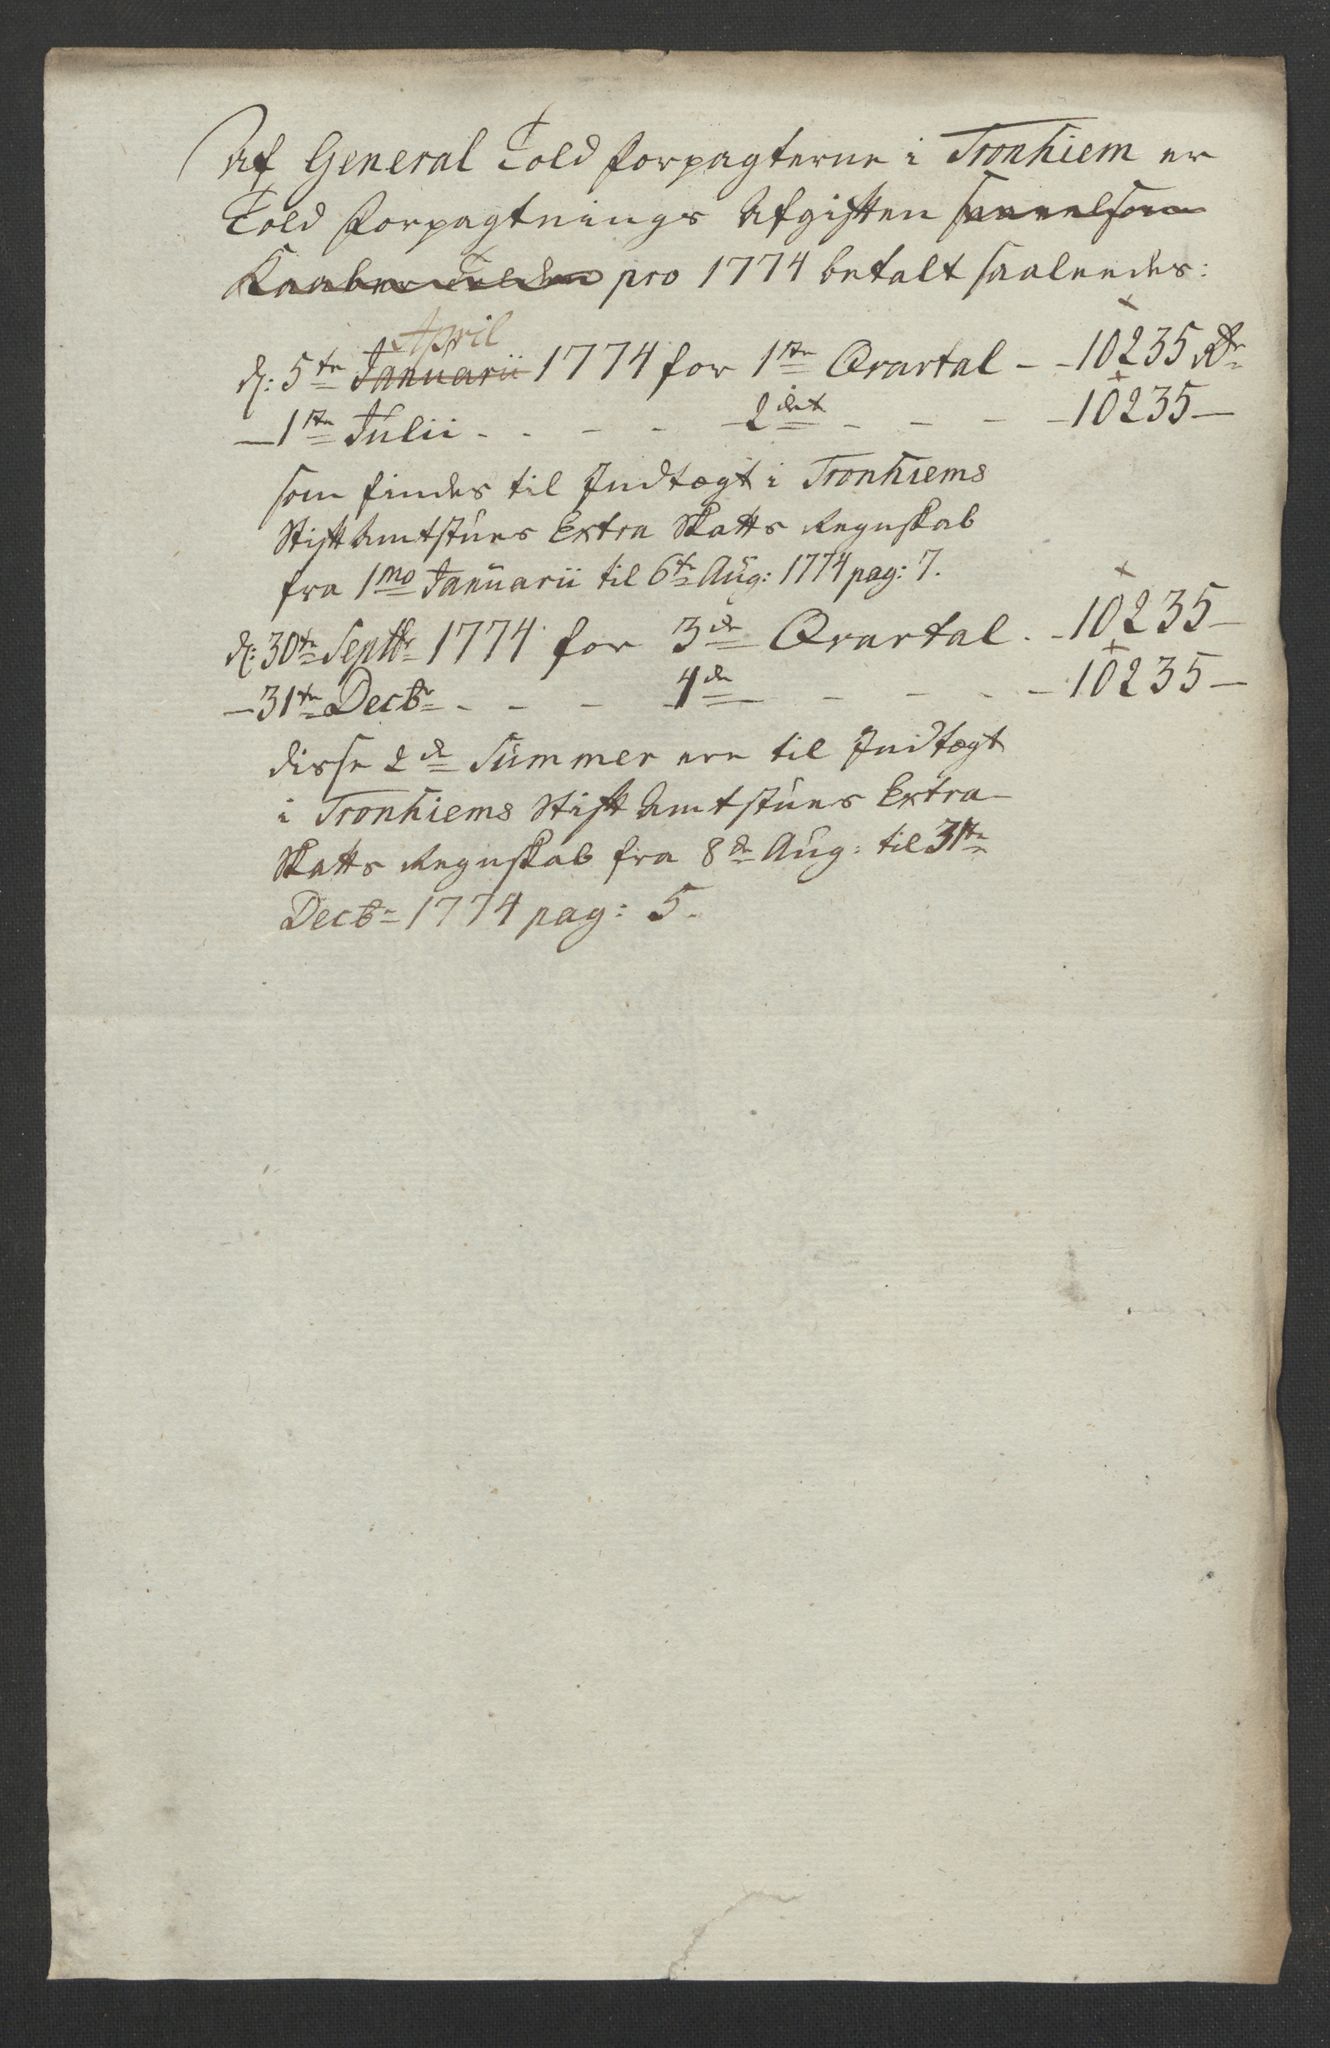 Af General Told Forpagterne i Tronhiem er
Told Forpagtnings Afgiften saavelsom
Kaaber Tolden pro 1774 betalt saaleedes:
April
d: 5te Januarii 1774 for 1ste Qvartal - - 10235 Rdr
— 1ste Julii - - - - 2det - - - - 10235 —
som findes til Indtægt i Tronhiems
Stift Amtstues Extra Skatts Regnskab
fra 1mo Januarii til 6te Aug: 1774 pag: 7.
d: 30te Septbr 1774 for 3de Qvartal. - 10235 —
— 31te Decbr - - - 4de - - - - 10235 —
disse 2de Summer ere til Indtægt
i Tronhiems Stift Amtstues Extra
Skatts Regnskab fra 8de Aug: til 31te
Decbr 1774 pag: 5.